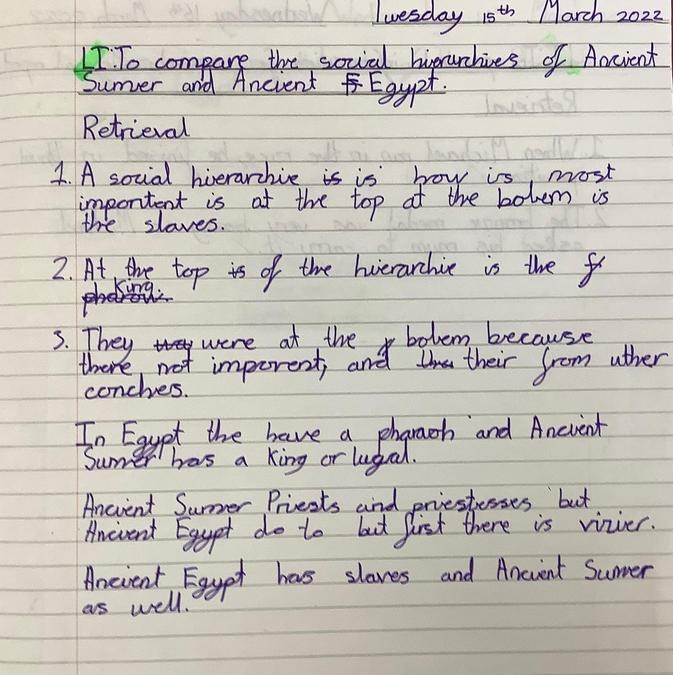 Tuesday 15th March 2022
LI: To compare the social hierarchies of Ancient
Sumer and Ancient Egypt.
Retrieval
1. A social hierarchie is is how is most
impontent is at the top at the bottem is
the slaves.
2. At the top is of the hierarchie is the
King
pharoh
3. They they were at the bottem because
there not imporent, and their from uther
conches.
In Egypt the have a pharaoh and Ancient
Sumer has a King or lugal.
Ancient Sumer Priests and priestesses but
Ancient Egypt do to but first there is vizier.
Ancient Egypt has slaves and Ancient Sumer
as well.